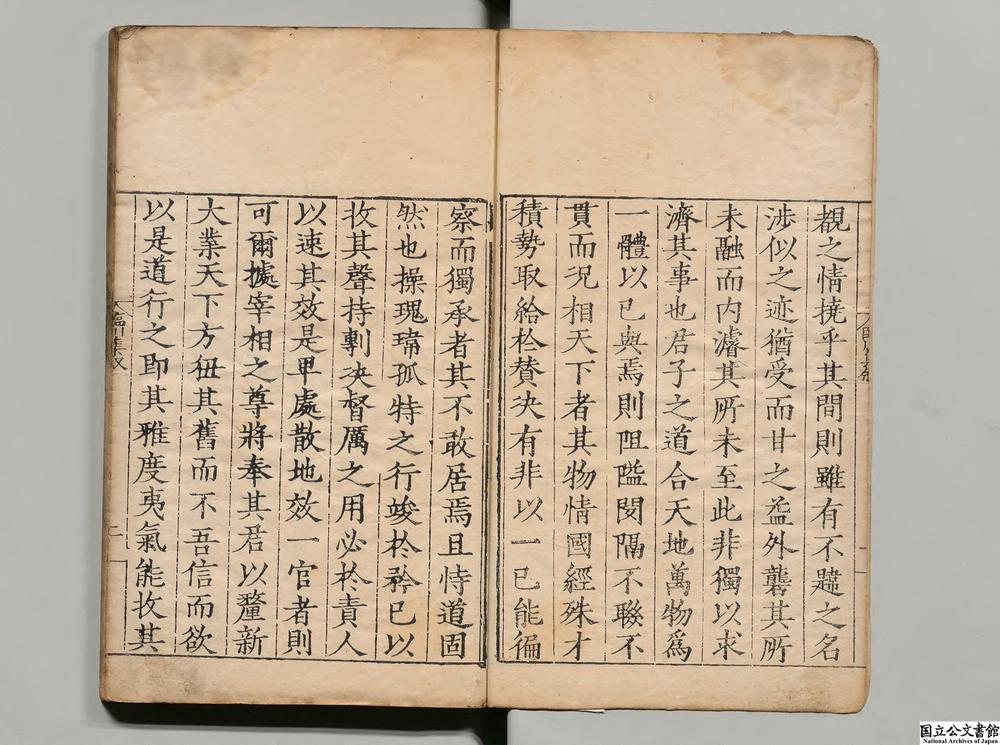 覩之情撓乎其間則雖有不韙之名
涉似之迹猶受而甘之盖外礱其所
未融而內濬其所未至此非獨以求
濟其事也君子之道合天地萬物爲
一體以已與焉則阻隘閡隔不聮不
貫而况相天下者其物情國經殊才
積勢取給於賛决有非以一已能徧
察而獨承者其不敢居焉且恃道固
然也操瑰琦孤特之行竣於矜已以
攻其聲持剸决督厲之用必於責人
以速其效是甲處散地效一官者則
可爾㩀宰相之尊將奉其君以釐新
大業天下方狃其舊而不吾信而欲
以是道行之即其雅度夷氣能攻其
臨川集叙
二
一
国立公文書館
National Archives of Japan